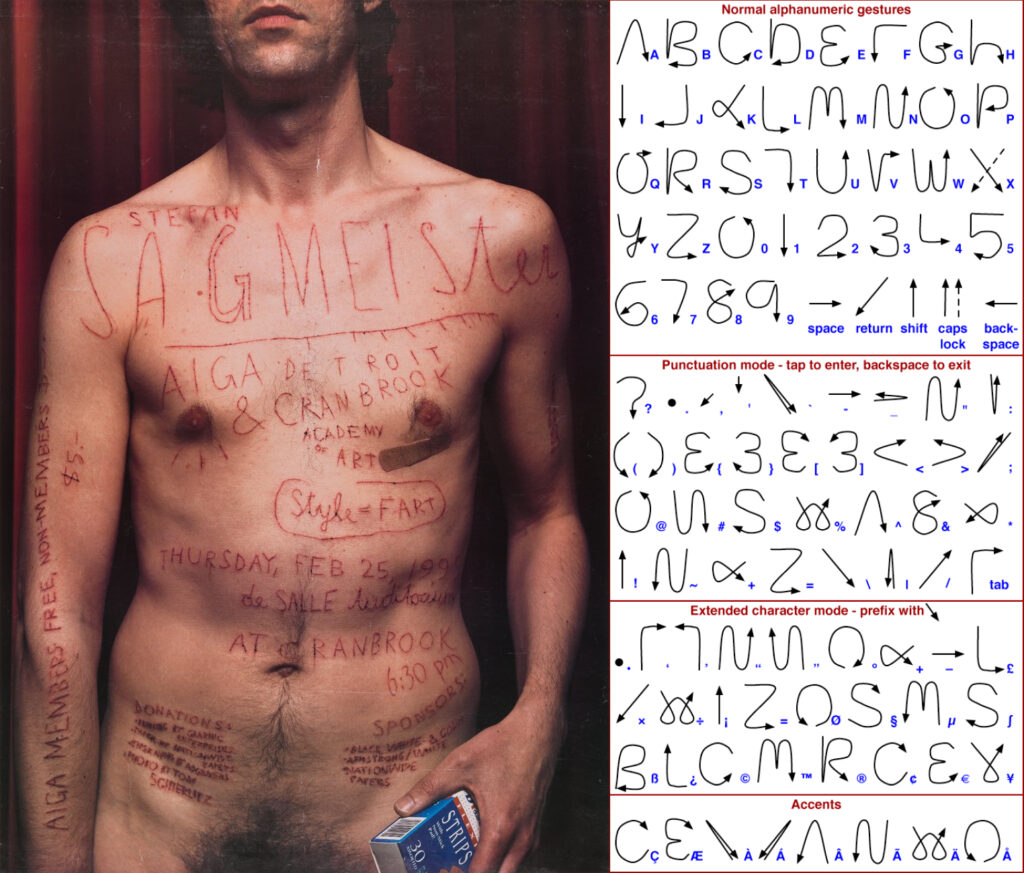 STEFAN
SAGMEISter
AIGA DETROIT
& CRANBROOK
ACADEMY
OF
ART
Style = FART
THURSDAY, FEB 25, 199
de SALLE Auditorium
AT CRANBROOK
6:30 pm
AIGA MEMBERS FREE, NON-MEMBERS $5.-
DONATIONS:
SPONSORS:
NATIONWIDE
PAPERS
STRIPS
30
Normal alphanumeric gestures
A B C D E F G H
I J K L M N O P
Q R S T U V W X
Y Z 0 1 2 3 4 5
6 7 8 9 space return shift caps lock back-space
Punctuation mode - tap to enter, backspace to exit
? . , ' ` - _ " :
( ) { } [ ] < > ;
@ # $ % ^ & *
! ~ + = \ | / tab
Extended character mode - prefix with
• ‘ ’ “ ” ° + – £
× ÷ ¡ = Ø § µ ∫
ß ¿ © ™ ® ¢ € ¥
Accents
Ç Æ À Á Â Ã Ä Å